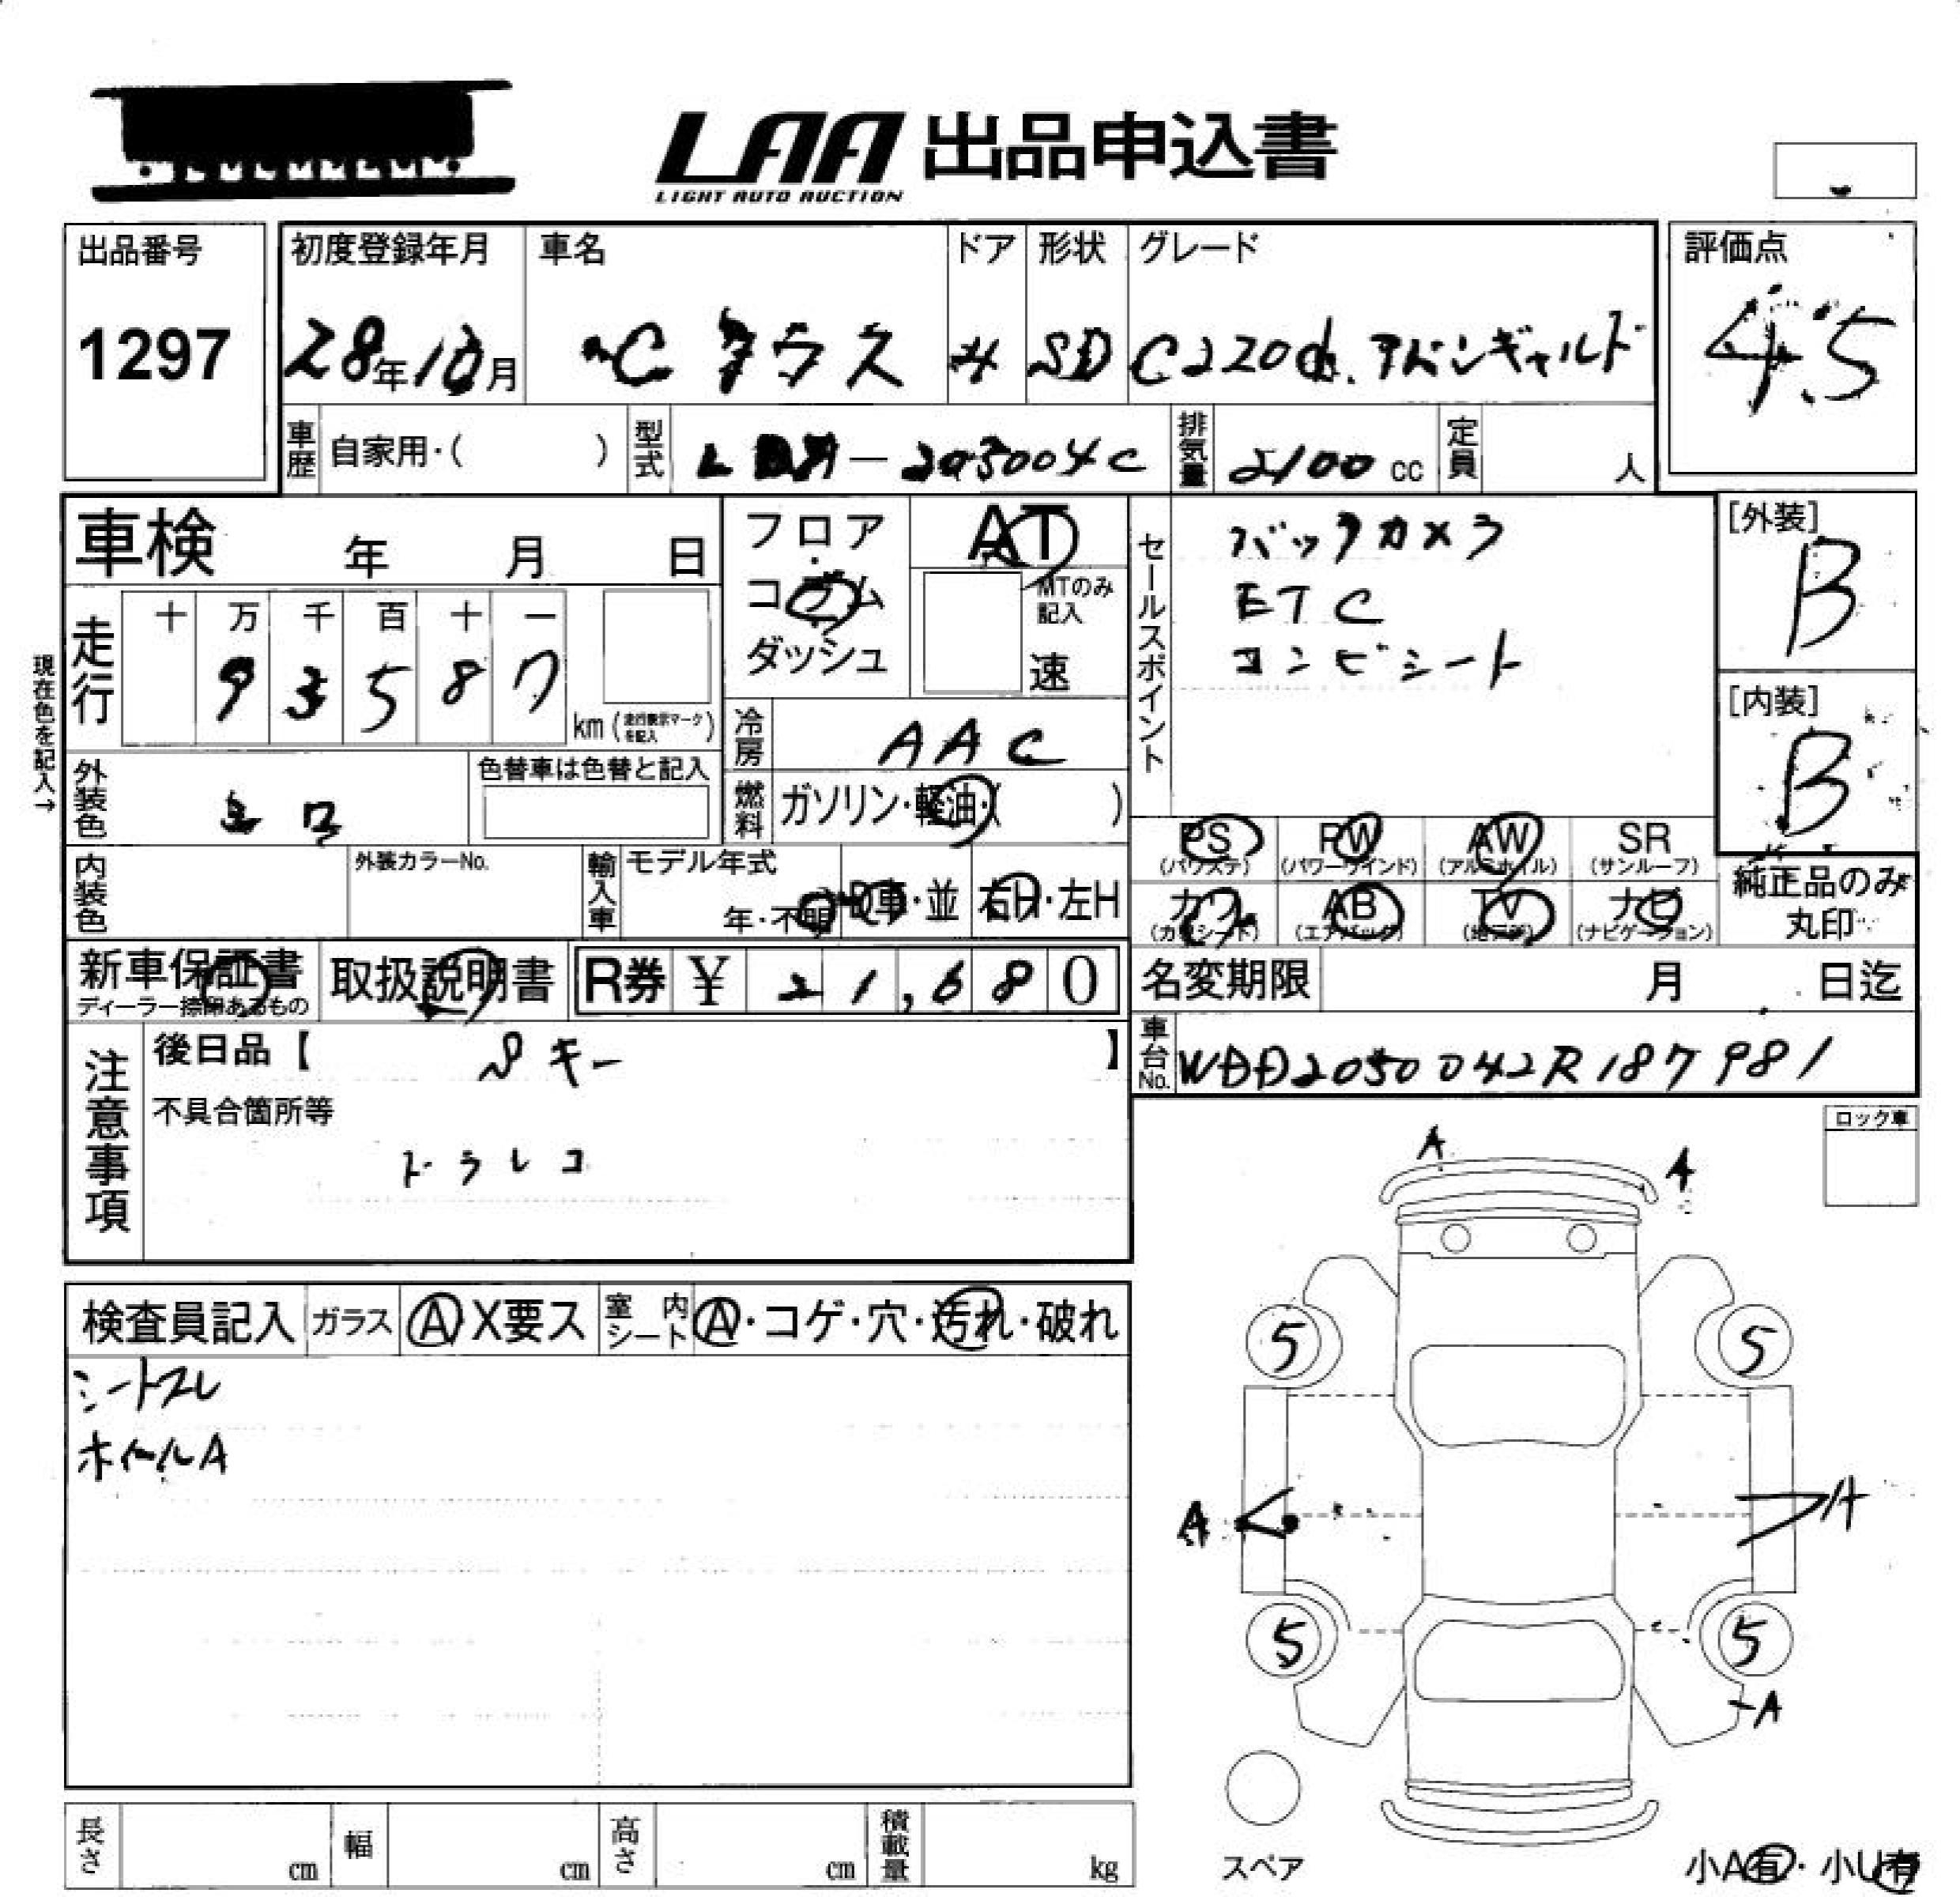 LAA 出品申込書
LIGHT AUTO AUCTION
出品番号
1297
初度登録年月
28年10月
車名
Cクラス
ドア
4
形状
SD
グレード
C220d.アバンギャルド
評価点
4.5
車歴
自家用・( )
型式
LDA-205004C
排気量
2100 cc
定員
人
車検 年 月 日
フロア・コラム ダッシュ
AT
MTのみ記入
速
セールスポイント
バックカメラ
ETC
コンビシート
[外装]
B
[内装]
B
現在色を記入→
走行
十 万 千 百 十 一
9 3 5 8 7
km (走行表示マークを記入)
冷房
AAC
外装色
色替車は色替と記入
燃料
ガソリン・軽油・( )
PS (パワステ)
PW (パワーウインド)
AW (アルミホイル)
SR (サンルーフ)
カワ (カワシート)
AB (エアバック)
TV
ナビ (ナビゲーション)
純正品のみ丸印
内装色
外装カラーNo.
輸入車
モデル年式
年・不明
D車・並
右H・左H
新車保証書
ディーラー捺印あるもの
取扱説明書
R券 ¥ 21,680
名変期限 月 日迄
車台No.
WDD2050042R187981
注意事項
後日品【 Sキー 】
不具合箇所等
ドラレコ
ロック車
A
A
検査員記入
ガラス
A X要ス
室内シート
A・コゲ・穴・汚れ・破れ
シートスレ
ホイールA
5
5
A
A
5
5
A
スペア
小A有・小U有
長さ cm
幅 cm
高さ cm
積載量 kg